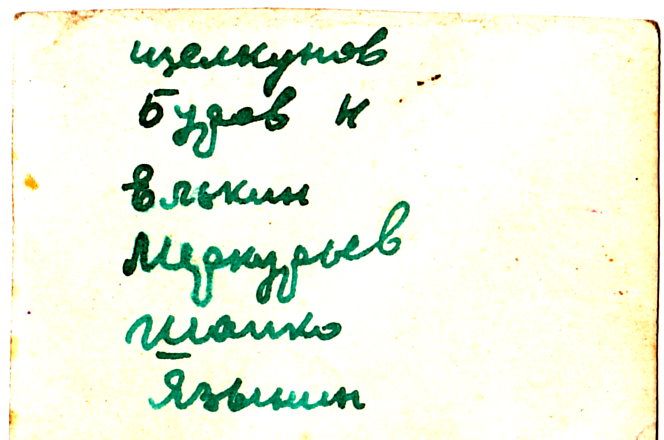 щелкунов
Будов Н
Елькин
Меркурьев
Шашко
Языкин